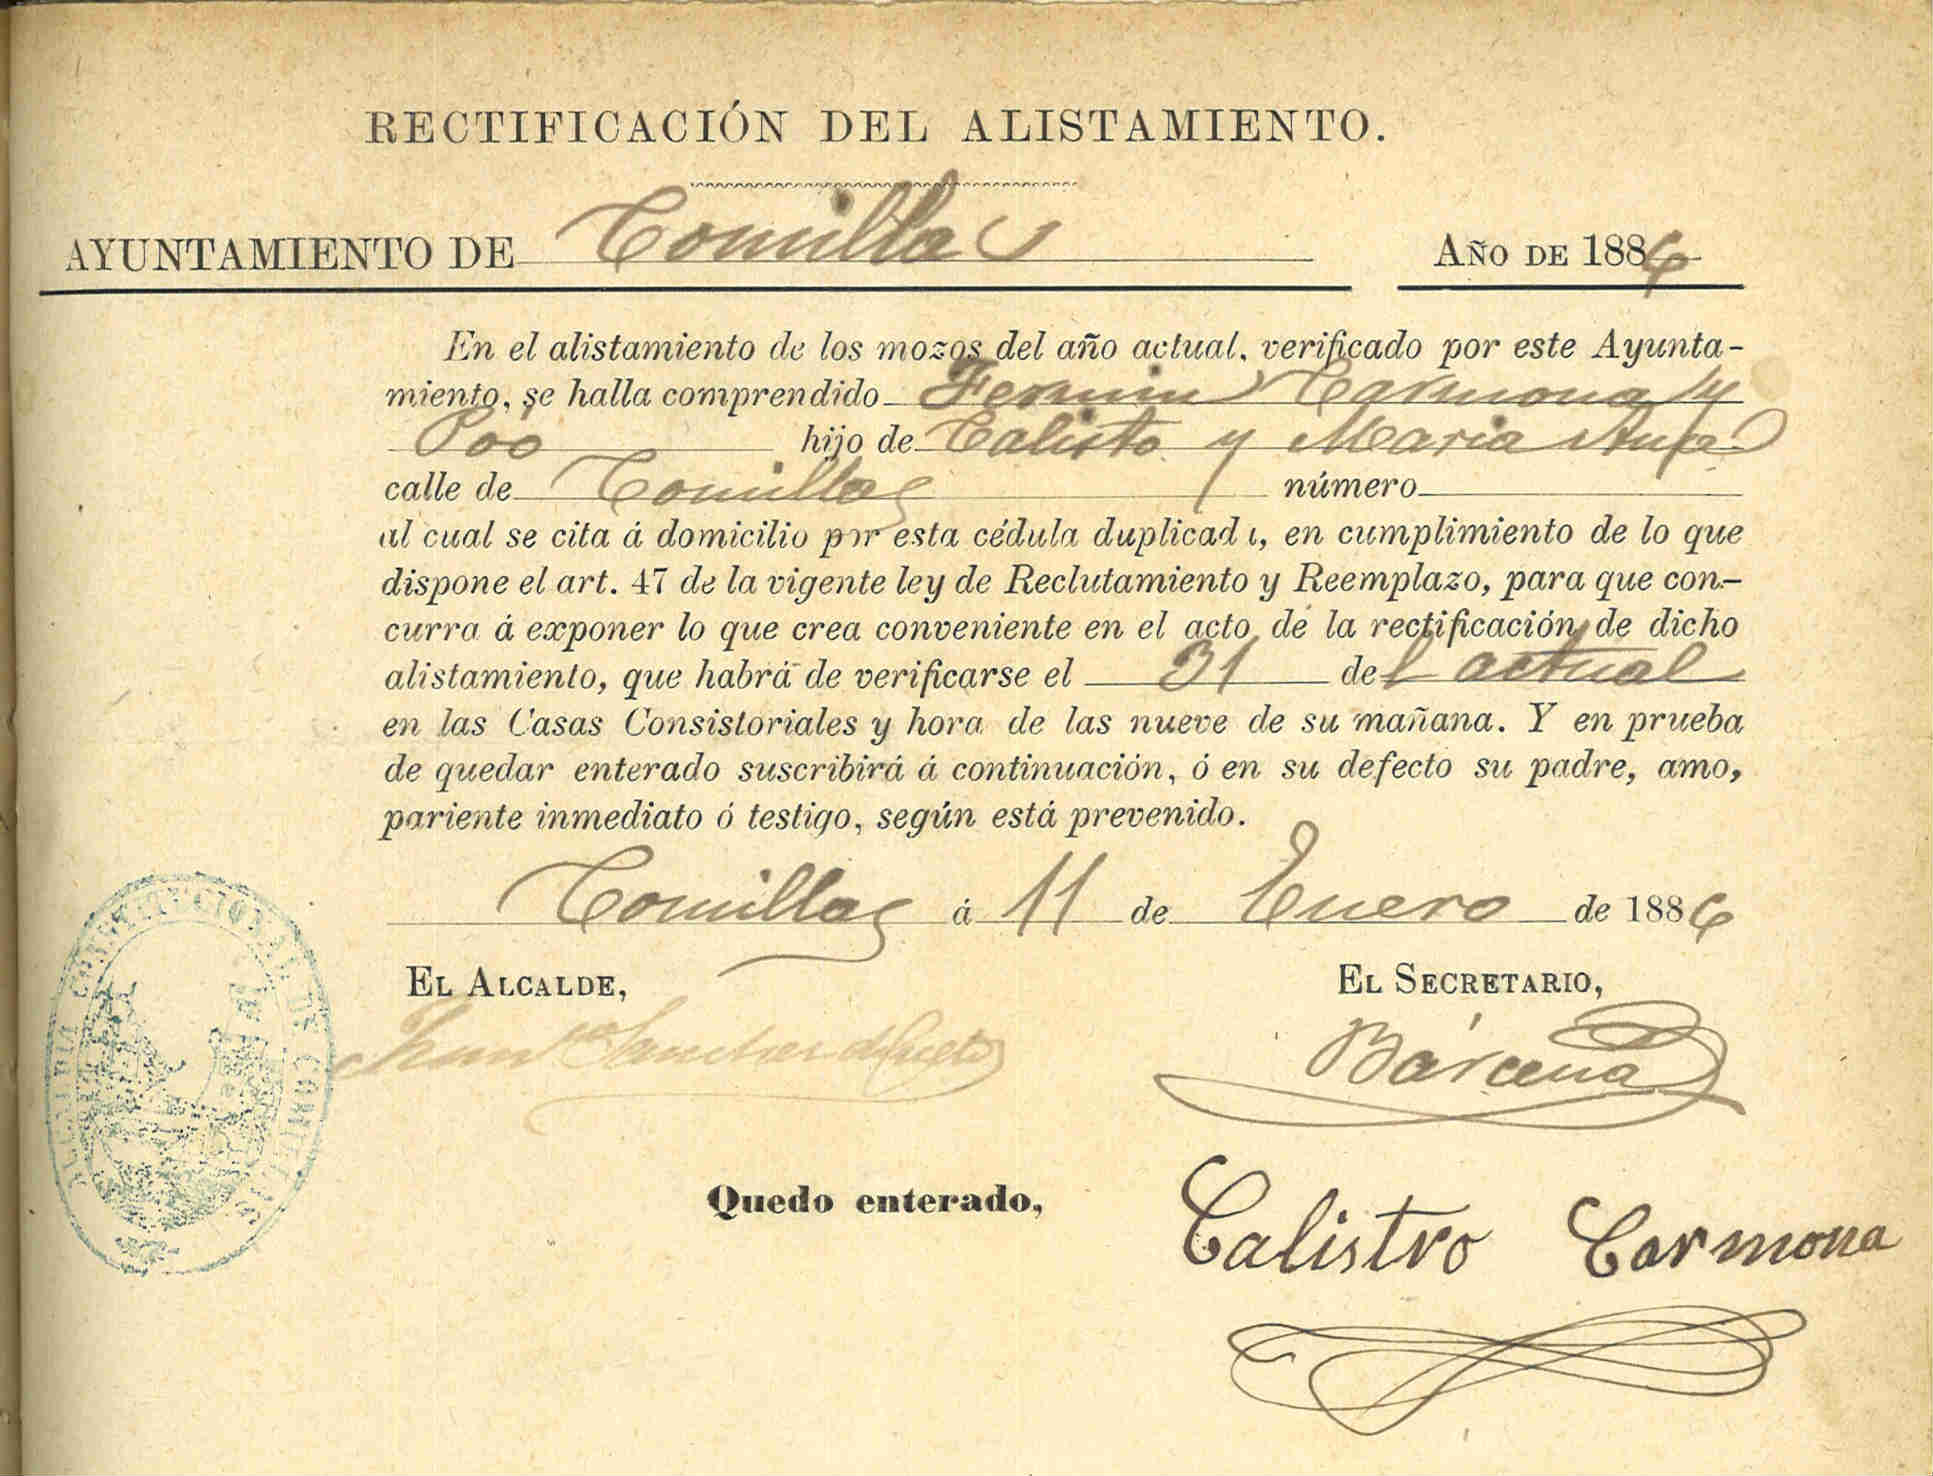 RECTIFICACIÓN DEL ALISTAMIENTO.
AYUNTAMIENTO DE Comillas AÑO DE 1886
En el alistamiento de los mozos del año actual, verificado por este Ayunta-
miento, se halla comprendido Fermin Carmona y
Poó hijo de Calisto y Maria
calle de Comillas número
al cual se cita á domicilio por esta cédula duplicada, en cumplimiento de lo que
dispone el art. 47 de la vigente ley de Reclutamiento y Reemplazo, para que con-
curra á exponer lo que crea conveniente en el acto de la rectificación de dicho
alistamiento, que habrá de verificarse el 31 del actual
en las Casas Consistoriales y hora de las nueve de su mañana. Y en prueba
de quedar enterado suscribirá á continuación, ó en su defecto su padre, amo,
pariente inmediato ó testigo, según está prevenido.
Comillas á 11 de Enero de 1886
EL ALCALDE, EL SECRETARIO,
Juan Sanchez Bárcena
ALCALDIA CONSTITUCIONAL DE COMILLAS
Quedo enterado, Calistro Carmona